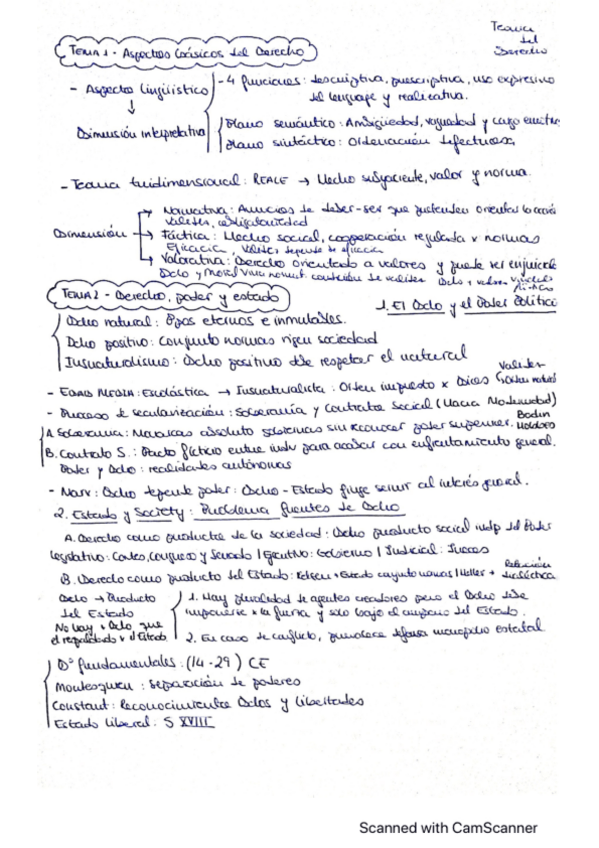 Teoría
del
Derecho
TEMA 1 - Aspectos básicos del Derecho
- Aspecto Lingüístico
- 4 funciones: descriptiva, prescriptiva, uso expresivo
del lenguaje y realizativa.
Dimensión interpretativa
Plano semántico: Ambigüedad, vaguedad y carga
Plano sintáctico: Ordenación defectuosa
- Teoría tridimensional: REALE → Hecho subyacente, valor y norma.
Dimensión
Normativa: Anuncios de deber-ser que pretenden orientar la
Validez, obligatoriedad
Fáctica: Hecho social, cooperación regulada x normas
Eficacia Validez depende de eficacia
Valorativa: Derecho orientado a valores y puede ser
Dcho y Moral
TEMA 2 - Derecho, poder y estado
1. El Dcho y el Poder Políti
Dcho natural: Leyes eternas e inmutables.
Dcho positivo: Conjunto normas rigen sociedad
Iusnaturalismo: Dcho positivo debe respetar el natural
- EDAD MEDIA: Escolástica → Iusnaturalista: Orden impuesto x Dios
Validez
Dcho natural
- Proceso de secularización: Soberanía y Contrato Social (Hacia Modernidad)
A. Soberanía: Monarcas absoluto gobiernan sin reconocer poder superior.
Bodin
B. Contrato S.: Pacto ficticio entre indv para acabar con enfrentamiento general.
Poder y Dcho: realidades autónomas
- Marx: Dcho depende poder: Dcho - Estado finge servir al interés general.
2. Estado y Society: Problema fuentes de Dcho
A. Derecho como producto de la sociedad: Dcho producto social indep del Poder
Legislativo: Cortes, Congreso y Senado / Ejecutivo: Gobierno / Judicial: Jueces
B. Derecho como producto del Estado: Kelsen → Estado conjunto normas / Heller →
Relación
dialéctica
Dcho → Producto
del Estado
No hay + Dcho que
el regulado x el Estado
1. Hay pluralidad de agentes creadores pero el Dcho debe
imponerse x la fuerza y solo bajo el amparo del Estado.
2. En caso de conflicto, prevalece defensa monopolio estatal.
Dº fundamentales: (14-29) CE
Montesquieu: Separación de poderes
Constant: Reconocimiento Dchos y libertades
Estado liberal: S XVIII
Scanned with CamScanner